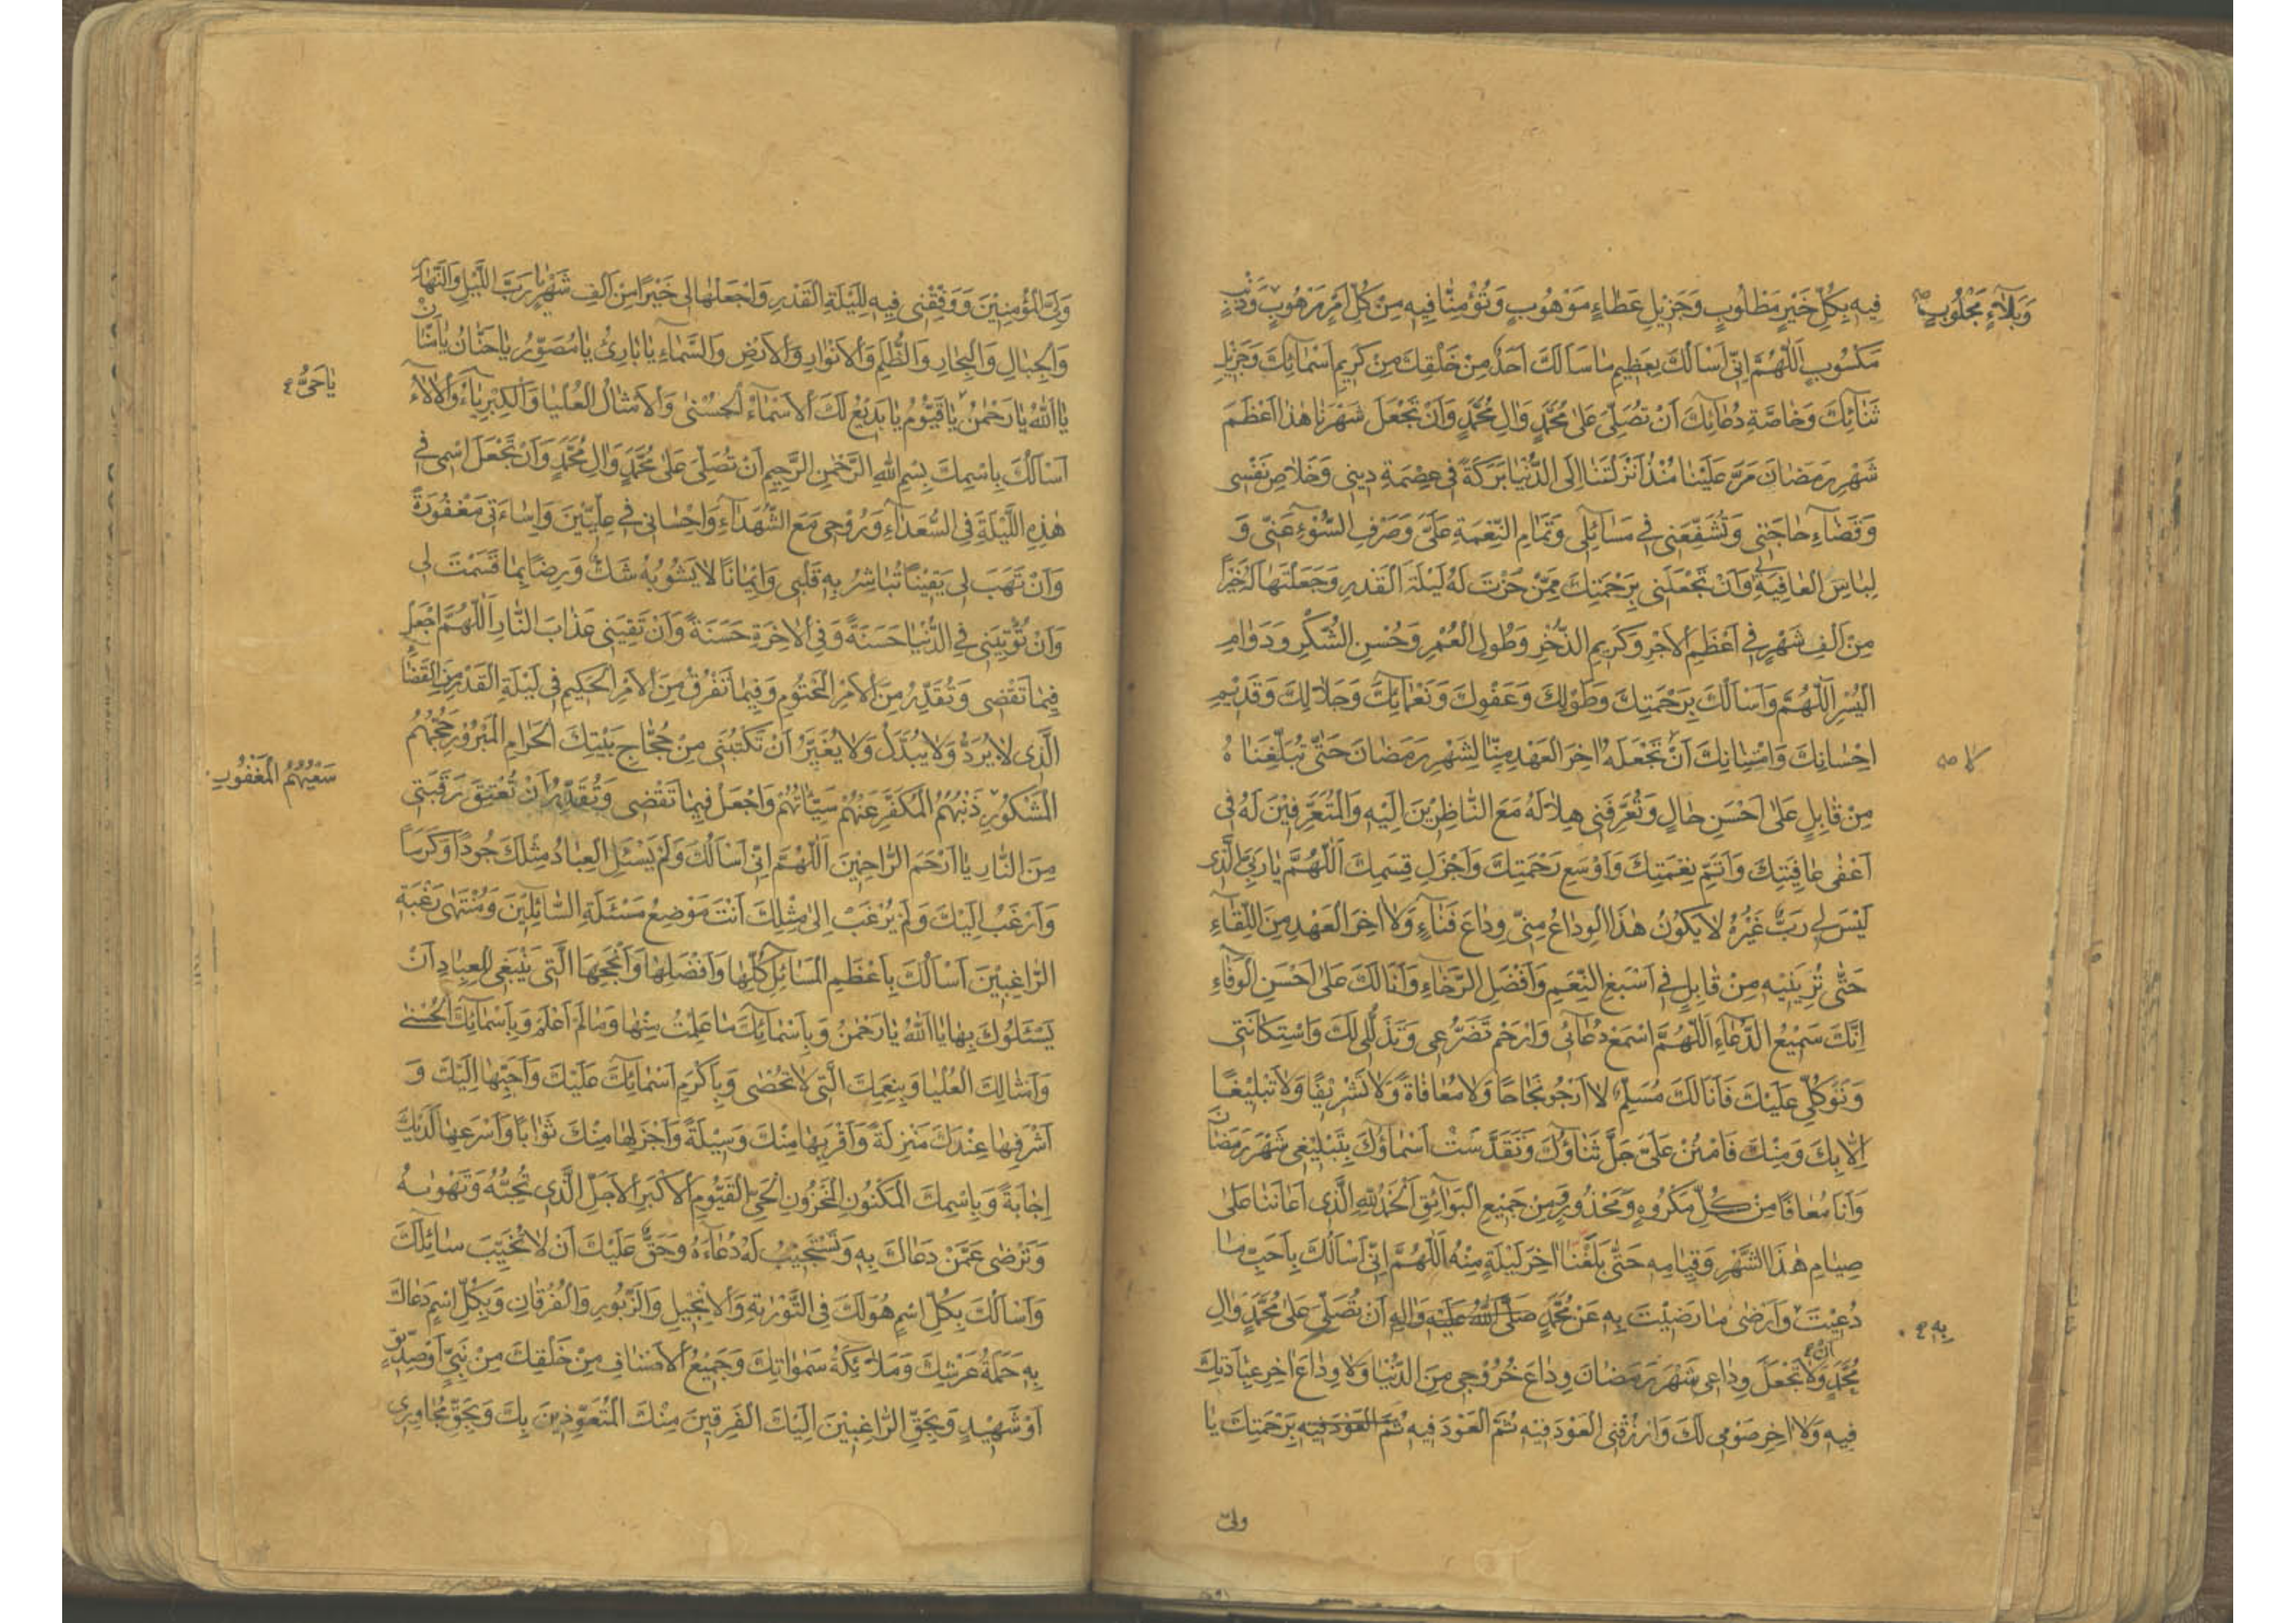 فِيهِ بِكُلِّ خَيْرٍ مَطْلُوبٍ وَجَزِيلِ عَطَاءٍ مَوْهُوبٍ وَتُؤْمِنَّا فِيهِ مِنْ كُلِّ اَمْرٍ مَرْهُوبٍ وَذَنْبٍ
وَبَلَاءٍ مَجْلُوبٍ
مَكْسُوبٍ اَللّٰهُمَّ اِنِّي اَسْاَلُكَ بِعَظِيمِ مَا سَاَلَكَ اَحَدٌ مِنْ خَلْقِكَ مِنْ كَرِيمِ اَسْمَائِكَ وَجَزِيلِ
ثَنَائِكَ وَخَاصَّةِ دُعَائِكَ اَنْ تُصَلِّيَ عَلَى مُحَمَّدٍ وَالِ مُحَمَّدٍ وَاَنْ تَجْعَلَ شَهْرَنَا هٰذَا اَعْظَمَ
شَهْرِ رَمَضَانَ مَرَّ عَلَيْنَا مُنْذُ اَنْزَلْتَنَا اِلَى الدُّنْيَا بَرَكَةً فِي عِصْمَةِ دِينِي وَخَلَاصِ نَفْسِي
وَقَضَاءِ حَاجَتِي وَتُشَفِّعَنِي فِي مَسَائِلِي وَتَمَامِ النِّعْمَةِ عَلَيَّ وَصَرْفِ السُّوْءِ عَنِّي وَ
لِبَاسِ الْعَافِيَةِ لِي وَاَنْ تَجْعَلَنِي بِرَحْمَتِكَ مِمَّنْ حُزْتَ لَهُ لَيْلَةَ الْقَدْرِ وَجَعَلْتَهَا لَهُ خَيْرًا
مِنْ اَلْفِ شَهْرٍ فِي اَعْظَمِ الْاَجْرِ وَكَرِيمِ الذُّخْرِ وَطُولِ الْعُمْرِ وَحُسْنِ الشُّكْرِ وَدَوَامِ
الْيُسْرِ اَللّٰهُمَّ وَاَسْاَلُكَ بِرَحْمَتِكَ وَطَوْلِكَ وَعَفْوِكَ وَنَعْمَائِكَ وَجَلَالِكَ وَقَدِيمِ
اِحْسَانِكَ وَامْتِنَانِكَ اَنْ تَجْعَلَهُ اخِرَ الْعَهْدِ مِنَّا لِشَهْرِ رَمَضَانَ حَتّٰى تُبَلِّغَنَاهُ
لا
مِنْ قَابِلٍ عَلَى اَحْسَنِ حَالٍ وَتُعَرِّفَنِي هِلَالَهُ مَعَ النَّاظِرِينَ اِلَيْهِ وَالْمُتَعَرِّفِيْنَ لَهُ فِي
اَعْفٰى عَافِيَتِكَ وَاَتَمِّ نِعْمَتِكَ وَاَوْسَعِ رَحْمَتِكَ وَاَجْزَلِ قِسَمِكَ اَللّٰهُمَّ يَا رَبِّيَ الَّذِي
لَيْسَ لِي رَبٌّ غَيْرُهُ لَا يَكُونُ هٰذَا الْوِدَاعُ مِنِّي وِدَاعَ فَنَاءٍ وَلَا اخِرَ الْعَهْدِ مِنَ اللِّقَاءِ
حَتّٰى تُرِيَنِيهِ مِنْ قَابِلٍ فِي اَسْبَغِ النِّعَمِ وَاَفْضَلِ الرَّخَاءِ وَاَنَا لَكَ عَلَى اَحْسَنِ الْوَفَاءِ
اِنَّكَ سَمِيْعُ الدُّعَاءِ اَللّٰهُمَّ اسْمَعْ دُعَائِي وَارْحَمْ تَضَرُّعِي وَتَذَلُّلِي لَكَ وَاسْتِكَانَتِي
وَتَوَكُّلِي عَلَيْكَ فَاَنَا لَكَ مُسَلِّمٌ لَا اَرْجُو نَجَاحًا وَلَا مُعَافَاةً وَلَا تَشْرِيفًا وَلَا تَبْلِيغًا
اِلَّا بِكَ وَمِنْكَ فَامْنُنْ عَلَيَّ جَلَّ ثَنَاؤُكَ وَتَقَدَّسَتْ اَسْمَاؤُكَ بِتَبْلِيغِي شَهْرَ رَمَضَانَ
وَاَنَا مُعَافًا مِنْ كُلِّ مَكْرُوهٍ وَمَحْذُورٍ مِنْ جَمِيعِ الْبَوَائِقِ اَلْحَمْدُ لِلّٰهِ الَّذِي اَعَانَنَا عَلَى
صِيَامِ هٰذَا الشَّهْرِ وَقِيَامِهِ حَتّٰى بَلَّغَنَا اخِرَ لَيْلَةٍ مِنْهُ اَللّٰهُمَّ اِنِّي اَسْاَلُكَ بِاَحَبِّ مَا
دُعِيْتَ وَاَرْضٰى مَا رَضِيْتَ بِهِ عَنْ مُحَمَّدٍ صَلَّى اللّٰهُ عَلَيْهِ وَالِهِ اَنْ تُصَلِّيَ عَلَى مُحَمَّدٍ وَالِ
بِهِ
مُحَمَّدٍ وَلَا تَجْعَلْ وِدَاعِي شَهْرَ رَمَضَانَ وِدَاعَ خُرُوْجِي مِنَ الدُّنْيَا وَلَا وِدَاعَ اخِرِ عِبَادَتِكَ
فِيهِ وَلَا اخِرَ صَوْمِي لَكَ وَارْزُقْنِي الْعَوْدَ فِيْهِ ثُمَّ الْعَوْدَ فِيهِ ثُمَّ الْعَوْدَ فِيهِ بِرَحْمَتِكَ يَا
ولىّ
وَلِيَّ الْمُؤْمِنِيْنَ وَوَفِّقْنِي فِيهِ لِلَيْلَةِ الْقَدْرِ وَاجْعَلْهَا لِي خَيْرًا مِنْ اَلْفِ شَهْرٍ يَا رَبَّ اللَّيْلِ وَالنَّهَارِ
وَالْجِبَالِ وَالْبِحَارِ وَالظُّلَمِ وَالْاَنْوَارِ وَالْاَرْضِ وَالسَّمَاءِ يَا بَارِئُ يَا مُصَوِّرُ يَا حَنَّانُ يَا مَنَّانُ
يَا اَللّٰهُ يَا رَحْمٰنُ يَا قَيُّوْمُ يَا بَدِيْعُ لَكَ الْاَسْمَاءُ الْحُسْنٰى وَالْاَمْثَالُ الْعُلْيَا وَالْكِبْرِيَاءُ وَالْالَاءُ
يَا حَيُّ
اَسْاَلُكَ بِاسْمِكَ بِسْمِ اللّٰهِ الرَّحْمٰنِ الرَّحِيمِ اَنْ تُصَلِّيَ عَلَى مُحَمَّدٍ وَالِ مُحَمَّدٍ وَاَنْ تَجْعَلَ اسْمِي فِي
هٰذِهِ اللَّيْلَةِ فِي السُّعَدَاءِ وَرُوْحِي مَعَ الشُّهَدَاءِ وَاِحْسَانِي فِي عِلِّيِّيْنَ وَاِسَاءَتِي مَغْفُورَةً
وَاَنْ تَهَبَ لِي يَقِيْنًا تُبَاشِرُ بِهِ قَلْبِي وَاِيْمَانًا لَا يَشُوْبُهُ شَكٌّ وَرِضًا بِمَا قَسَمْتَ لِي
وَاَنْ تُؤْتِيَنِي فِي الدُّنْيَا حَسَنَةً وَفِي الْاخِرَةِ حَسَنَةً وَاَنْ تَقِيَنِي عَذَابَ النَّارِ اَللّٰهُمَّ اجْعَلْ
فِيمَا تَقْضِي وَتُقَدِّرُ مِنَ الْاَمْرِ الْمَحْتُومِ وَفِيمَا تَفْرُقُ مِنَ الْاَمْرِ الْحَكِيمِ فِي لَيْلَةِ الْقَدْرِ مِنَ الْقَضَاءِ
الَّذِي لَا يُرَدُّ وَلَا يُبَدَّلُ وَلَا يُغَيَّرُ اَنْ تَكْتُبَنِي مِنْ حُجَّاجِ بَيْتِكَ الْحَرَامِ الْمَبْرُوْرِ حَجُّهُمُ
الْمَشْكُورِ ذَنْبُهُمُ الْمُكَفَّرِ عَنْهُمْ سَيِّئَاتُهُمْ وَاجْعَلْ فِيمَا تَقْضِي وَتُقَدِّرُ اَنْ تُعْتِقَ رَقَبَتِي
سَعْيُهُمُ الْمَغْفُورِ
مِنَ النَّارِ يَا اَرْحَمَ الرَّاحِمِيْنَ اَللّٰهُمَّ اِنِّي اَسْاَلُكَ وَلَمْ يَسْئَلِ الْعِبَادُ مِثْلَكَ جُودًا وَكَرَمًا
وَاَرْغَبُ اِلَيْكَ وَلَمْ يُرْغَبْ اِلٰى مِثْلِكَ اَنْتَ مَوْضِعُ مَسْئَلَةِ السَّائِلِيْنَ وَمُنْتَهٰى رَغْبَةِ
الرَّاغِبِيْنَ اَسْاَلُكَ بِاَعْظَمِ الْمَسَائِلِ كُلِّهَا وَاَفْضَلِهَا وَاَنْجَحِهَا الَّتِي يَنْبَغِي لِلْعِبَادِ اَنْ
يَسْئَلُوكَ بِهَا يَا اَللّٰهُ يَا رَحْمٰنُ وَبِاَسْمَائِكَ مَا عَلِمْتُ مِنْهَا وَمَا لَمْ اَعْلَمْ وَبِاَسْمَائِكَ الْحُسْنٰى
وَاَمْثَالِكَ الْعُلْيَا وَبِنِعَمِكَ الَّتِي لَا تُحْصٰى وَبِاَكْرَمِ اَسْمَائِكَ عَلَيْكَ وَاَحَبِّهَا اِلَيْكَ وَ
اَشْرَفِهَا عِنْدَكَ مَنْزِلَةً وَاَقْرَبِهَا مِنْكَ وَسِيْلَةً وَاَجْزَلِهَا مِنْكَ ثَوَابًا وَاَسْرَعِهَا لَدَيْكَ
اِجَابَةً وَبِاسْمِكَ الْمَكْنُونِ الْمَخْزُونِ الْحَيِّ الْقَيُّومِ الْاَكْبَرِ الْاَجَلِّ الَّذِي تُحِبُّهُ وَتَهْوٰيهُ
وَتَرْضٰى عَمَّنْ دَعَاكَ بِهِ وَتَسْتَجِيْبُ لَهُ دُعَاءَهُ وَحَقٌّ عَلَيْكَ اَنْ لَا تُخَيِّبَ سَائِلَكَ
وَاَسْاَلُكَ بِكُلِّ اسْمٍ هُوَ لَكَ فِي التَّوْرٰيةِ وَالْاِنْجِيلِ وَالزَّبُورِ وَالْفُرْقَانِ وَبِكُلِّ اسْمٍ دَعَاكَ
بِهِ حَمَلَةُ عَرْشِكَ وَمَلَائِكَةُ سَمٰوَاتِكَ وَجَمِيْعُ الْاَصْنَافِ مِنْ خَلْقِكَ مِنْ نَبِيٍّ اَوْ صِدِّيْقٍ
اَوْ شَهِيْدٍ وَبِحَقِّ الرَّاغِبِيْنَ اِلَيْكَ الْفَرِقِينَ مِنْكَ الْمُتَعَوِّذِينَ بِكَ وَبِحَقِّ مُجَاوِرِي